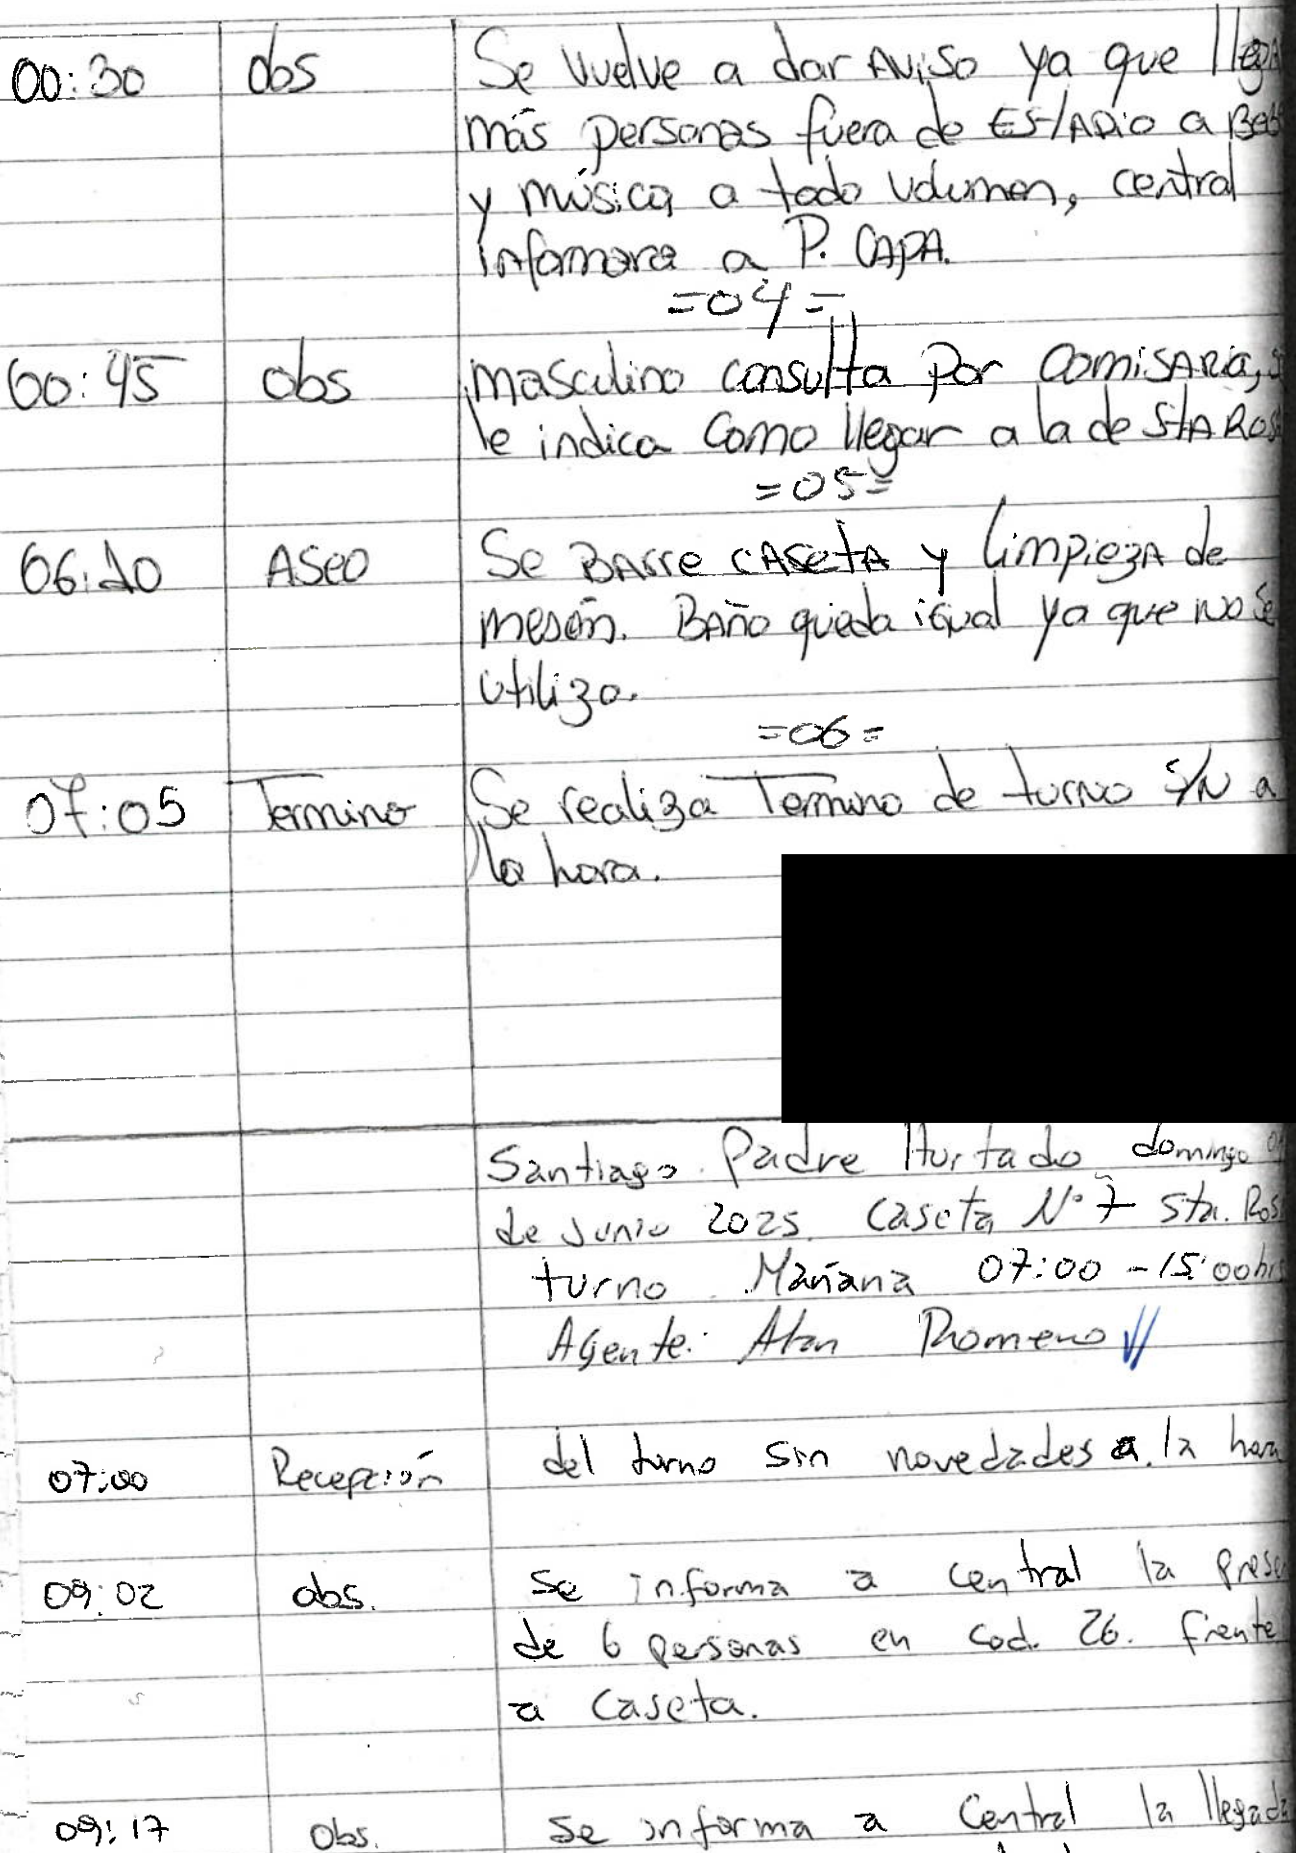 00:30 obs Se vuelve a dar Aviso ya que llega
más personas fuera de ESTADIO a Beb
y música a todo volumen, central
informara a P. CAPA.
=04=
00:45 obs masculino consulta Por ComisARía, s
le indica Como llegar a la de StA Ros
=05=
06:10 ASeo Se BARre CASetA y limpiezA de
mesón. BAño queda igual ya que No Se
utilizo.
=06=
07:05 Termino Se realiza Termino de turno S/N a
la hora.
Santiago. Padre Hurtado domingo 01
de Junio 2025. Caseta N° 7 Sta. Ros
turno Mañana 07:00 - 15:00hrs
Agente: Alan Romero
07:00 Recepción del turno sin novedades a la hora
09:02 obs. se informa a central la prese
de 6 personas en cod. 26. frente
a caseta.
09:17 Obs. se informa a Central la llegada